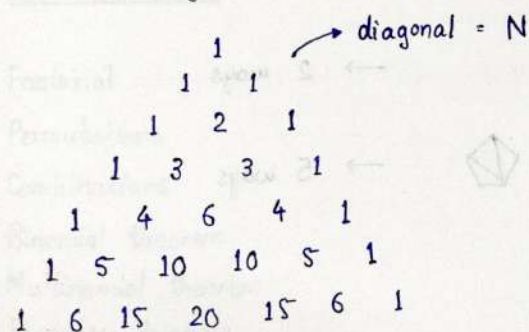 diagonal = N
1
1 1
1 2 1
1 3 3 1
1 4 6 4 1
1 5 10 10 5 1
1 6 15 20 15 6 1